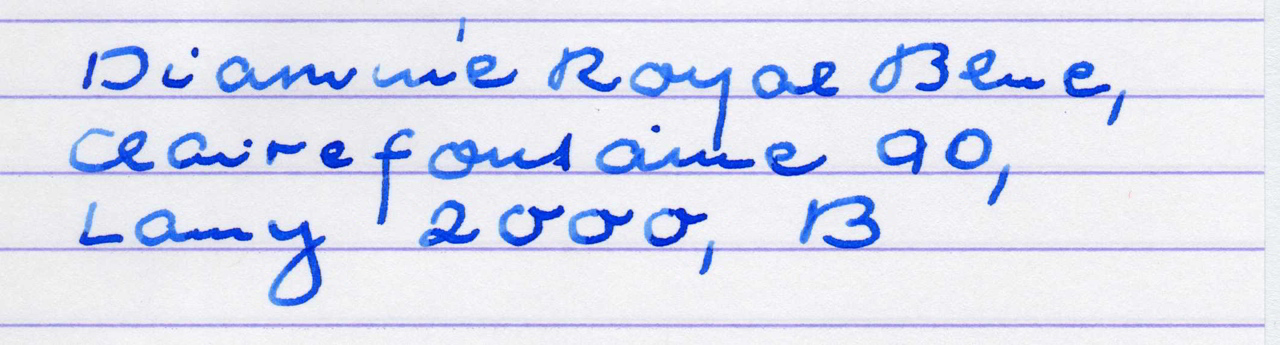 Diamine Royal Blue,
Clairefontaine 90,
Lamy 2000, B